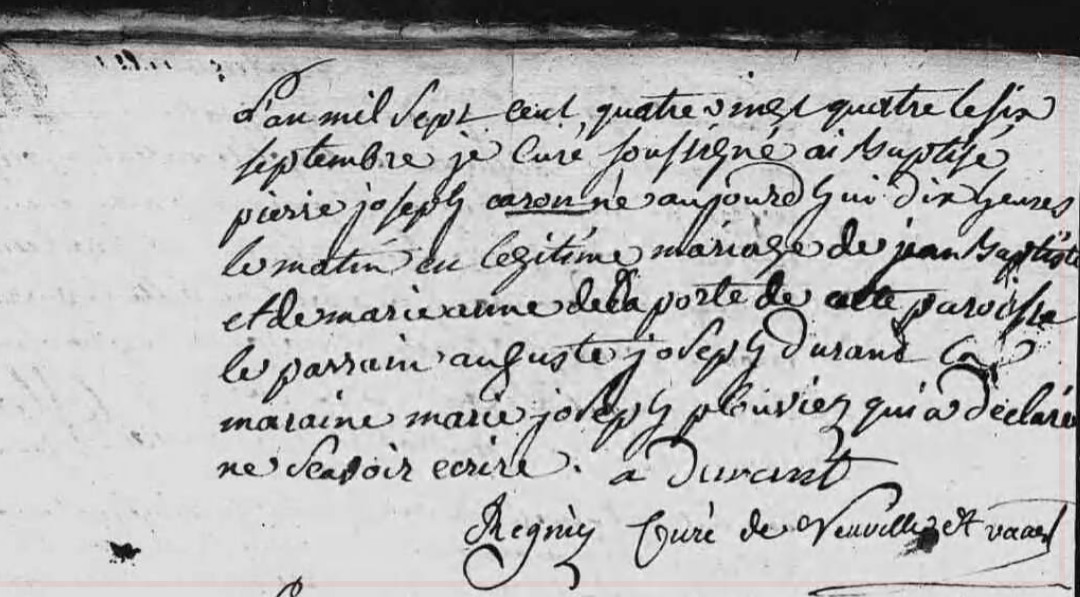 L'an mil Sept cent quatre vingt quatre le six
septembre je Curé soussigné ai Baptisé
pierre joseph caron né aujourd hui dix heures
le matin en legitime mariage de jean Baptiste
et de marie anne de la porte de cette paroisse
le parrain auguste joseph durand La
maraine marie joseph plouviez qui a déclaré
ne Scavoir ecrire. a Durant
Regniez Curé de Neuville et vaast